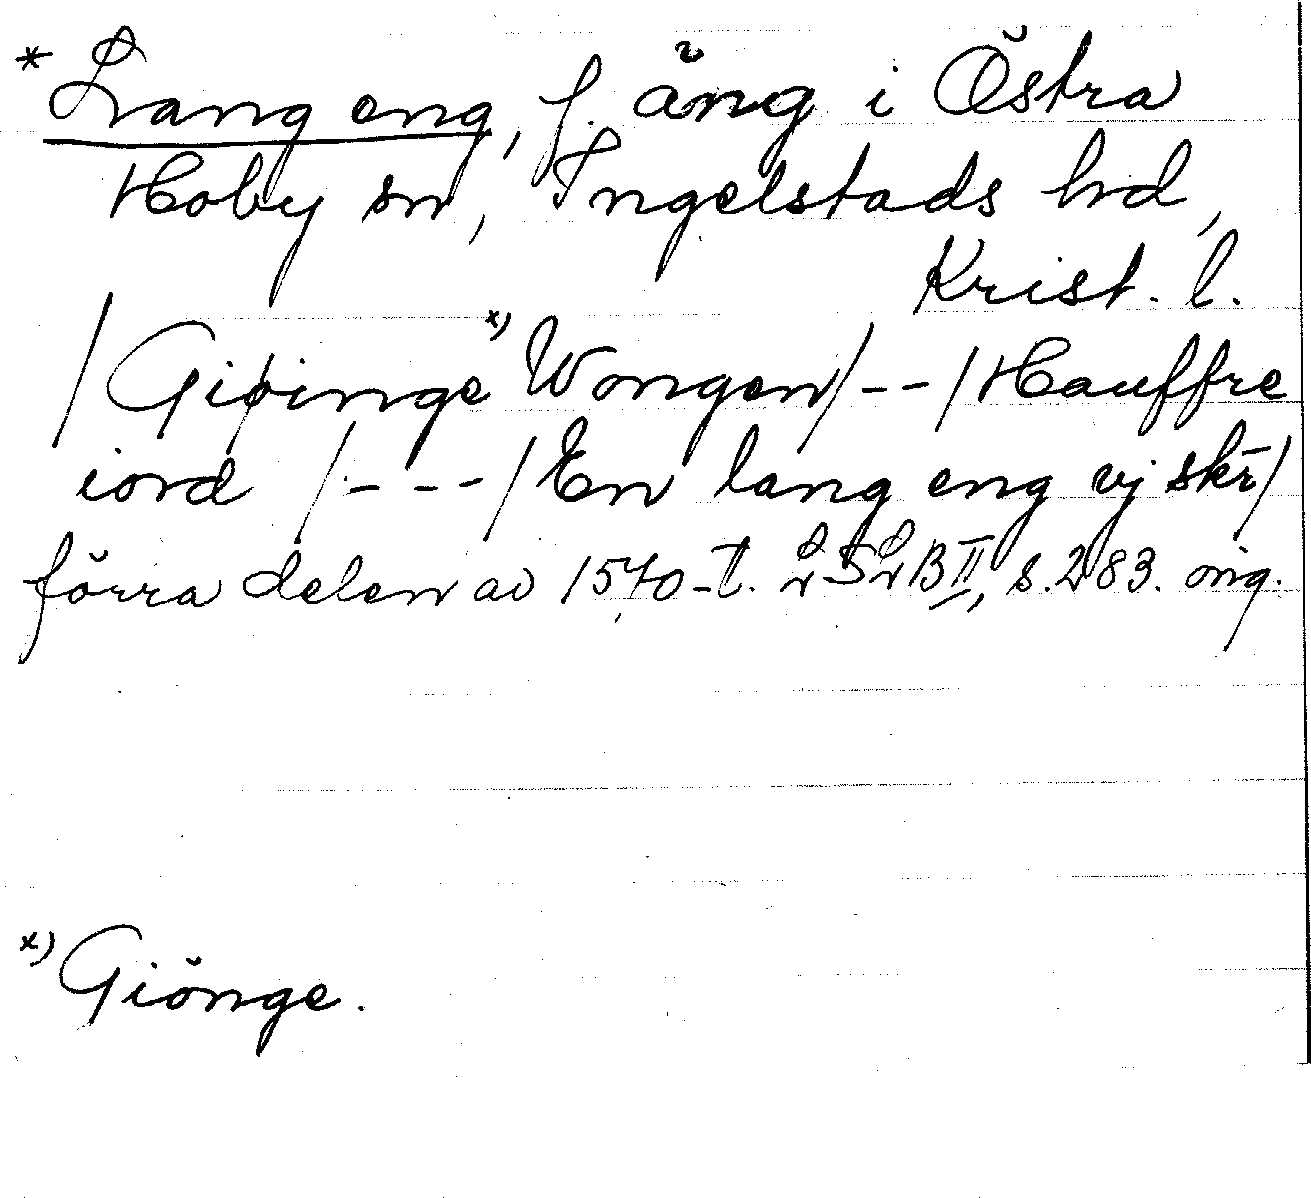 * Lang eng, f. äng i Östra
Hoby sn, Ingelstads hd,
Krist. l.
/ Giøinge x) Wongen / - - / Hauffre
iord / - - - / En lang eng vj skr̄ /
förra delen av 1570-t. LSLB II, s. 283. orig.
x) Giönge.